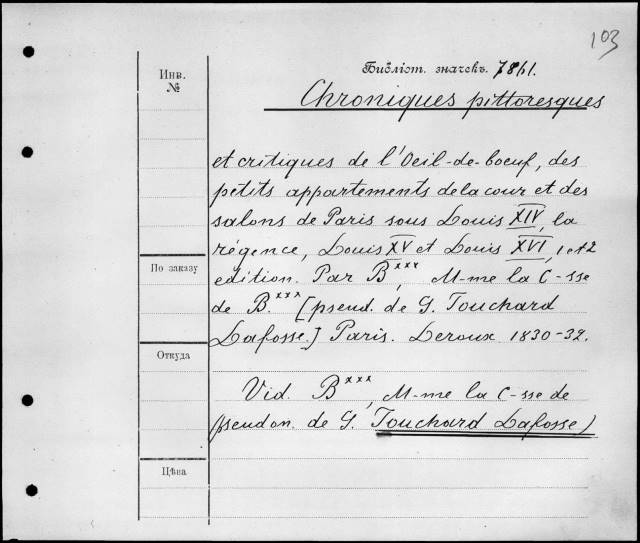 103
Инв.
№
Библіот. значекъ. 7861.
Chroniques pittoresques
et critiques de l'Oeil-de-boeuf, des
petits appartements de la cour et des
salons de Paris sous Louis XIV, la
régence, Louis XV et Louis XVI, 1 et 2
edition. Par B***, M-me la C-sse
По заказу
de B.*** [pseud. de G. Touchard
Lafosse.] Paris. Leroux 1830-32.
Откуда
Vid. B***, M-me la C-sse de
(pseudon. de G. Touchard Lafosse)
Цѣна